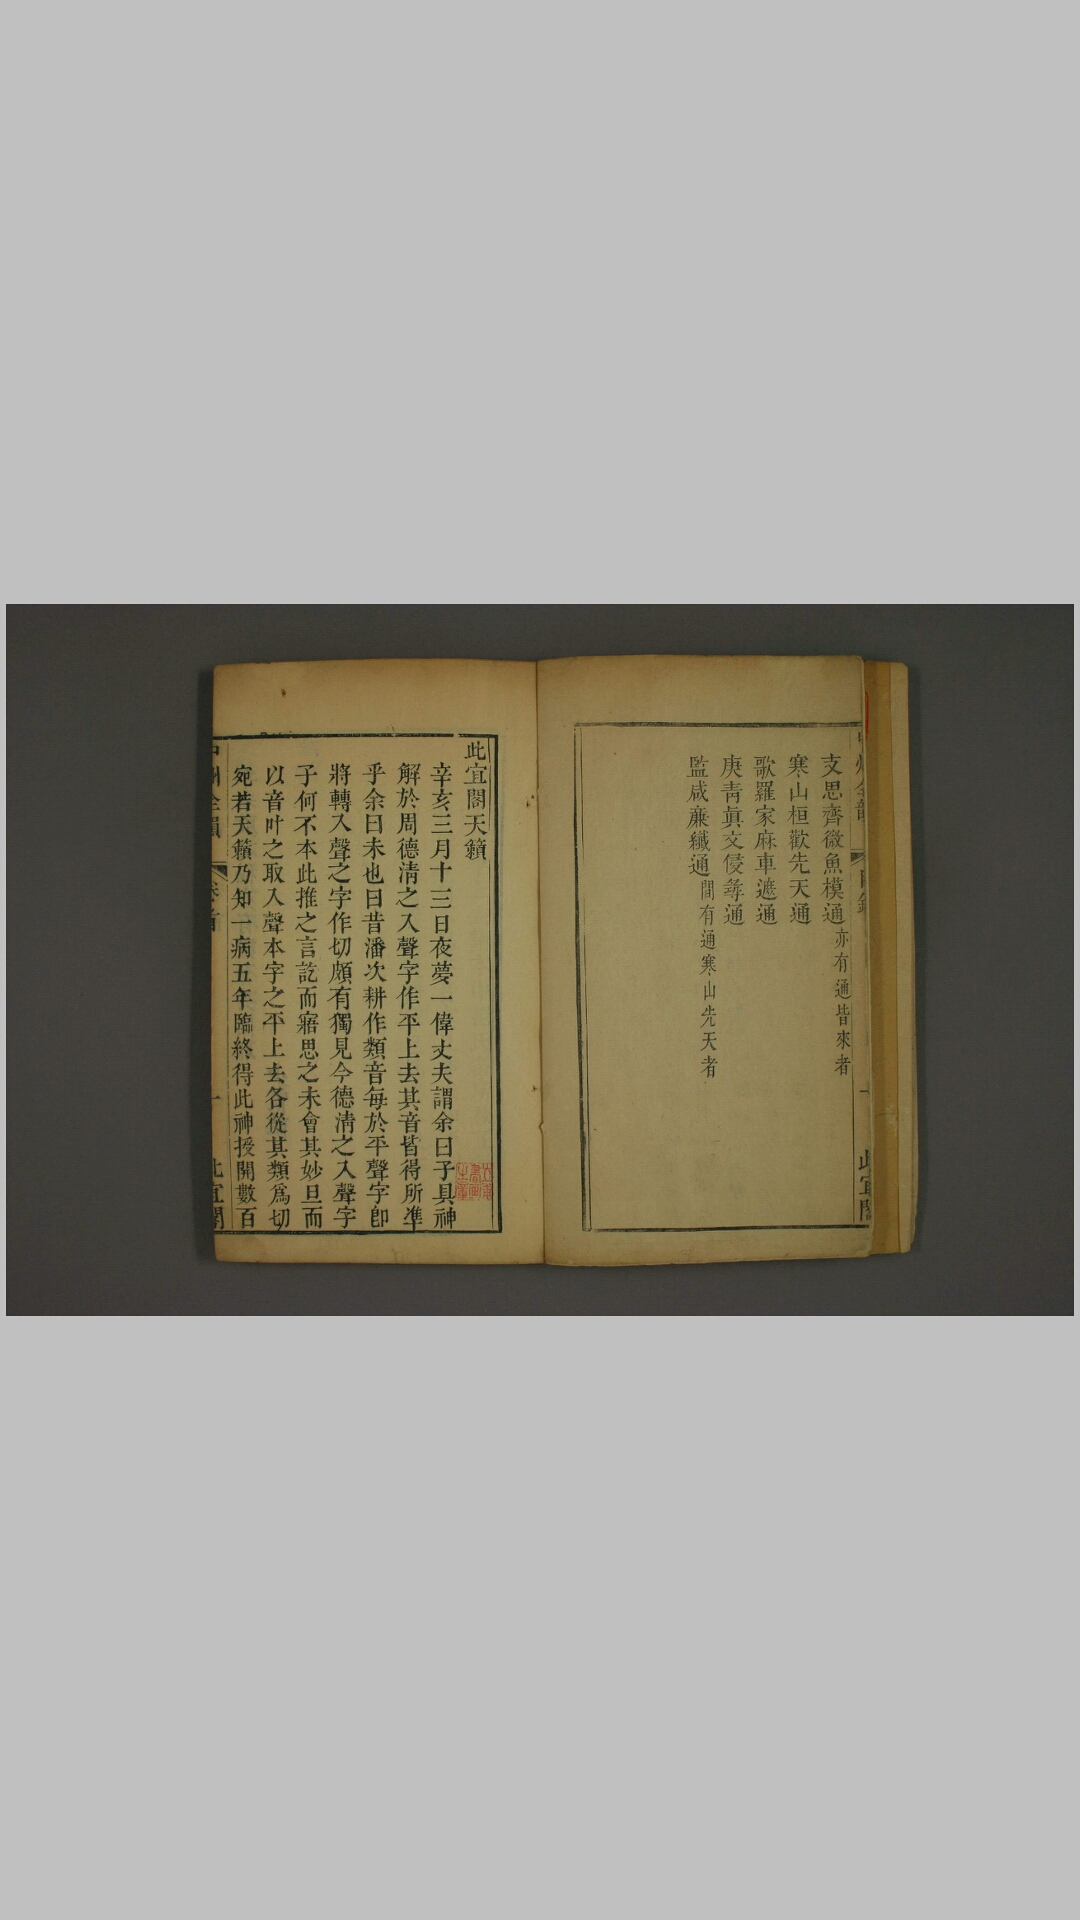 支思齊微魚模通亦有通皆來者
寒山桓歡先天通
歌羅家麻車遮通
庚靑眞文侵尋通
監咸廉纖通間有通寒山先天者
此宜閣
此宜閣天籟
辛亥三月十三日夜夢一偉丈夫謂余曰子具神
解於周德淸之入聲字作平上去其音皆得所準
乎余曰未也曰昔潘次耕作類音每於平聲字卽
將轉入聲之字作切頗有獨見今德淸之入聲字
子何不本此推之言訖而寤思之未會其妙旦而
以音叶之取入聲本字之平上去各從其類爲切
宛若天籟乃知一病五年臨終得此神授開數百
中州全韻 卷首 一 此宜閣